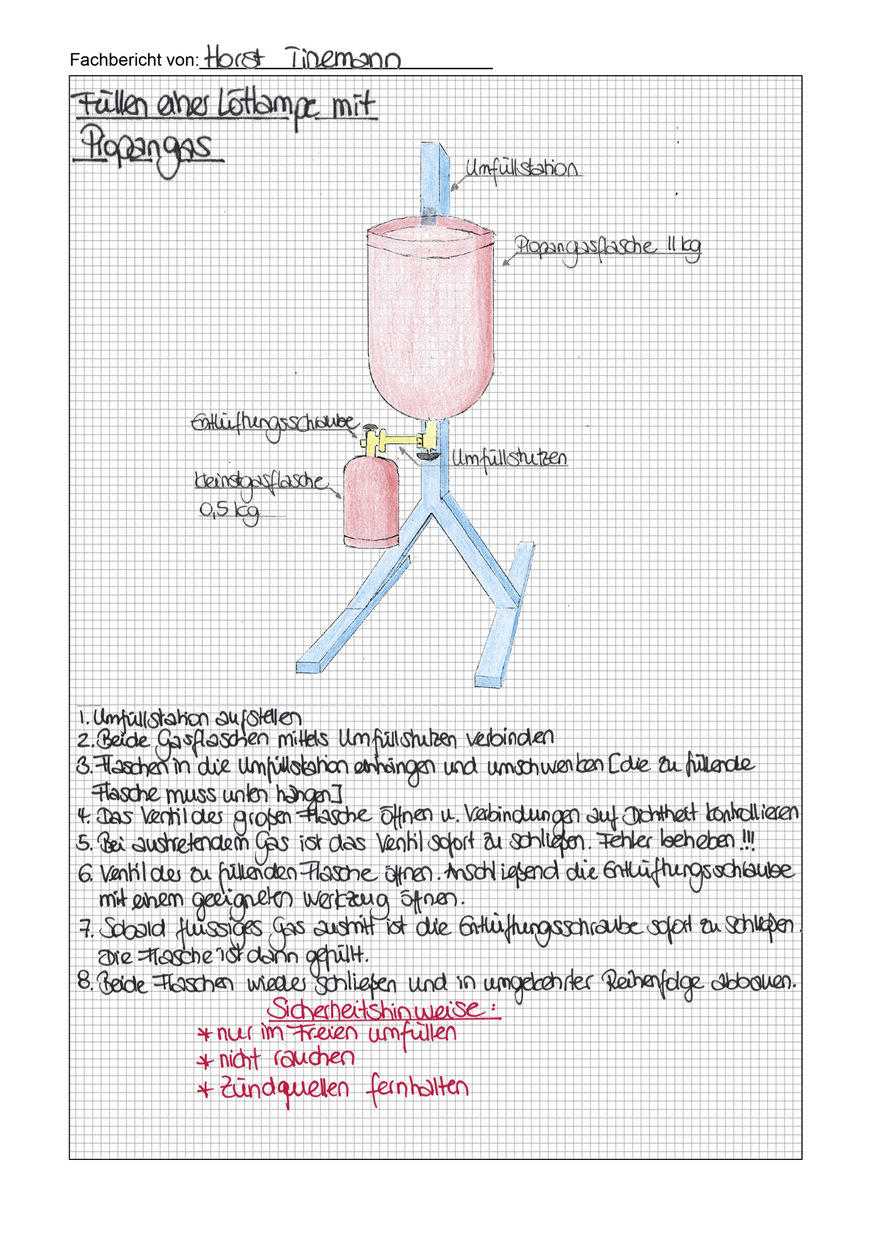 Fachbericht von: Horst Tinemann
Füllen einer Lötlampe mit
Propangas
Umfüllstation
Propangasflasche 11 kg
Entlüftungsschraube
Umfüllstutzen
Kleinstgasflasche
0,5 kg
1. Umfüllstation aufstellen
2. Beide Gasflaschen mittels Umfüllstutzen verbinden
3. Flaschen in die Umfüllstation einhängen und umschwenken [die zu füllende
Flasche muss unten hängen]
4. Das Ventil der großen Flasche öffnen u. Verbindungen auf Dichtheit kontrollieren
5. Bei austretendem Gas ist das Ventil sofort zu schließen. Fehler beheben!!!
6. Ventil der zu füllenden Flasche öffnen. Anschließend die Entlüftungsschraube
mit einem geeigneten Werkzeug öffnen.
7. Sobald flüssiges Gas austritt ist die Entlüftungsschraube sofort zu schließen.
Die Flasche ist dann gefüllt.
8. Beide Flaschen wieder schließen und in umgekehrter Reihenfolge abbauen.
Sicherheitshinweise:
* nur im Freien umfüllen
* nicht rauchen
* Zündquellen fernhalten